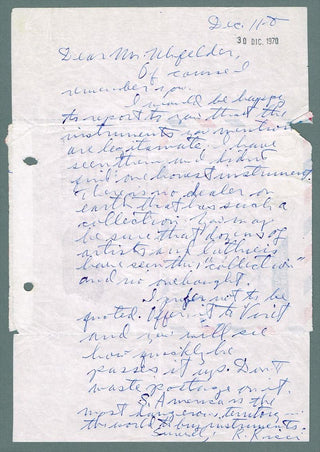 Dec. 11-8
30 DIC. 1970
Dear Mr. Uhlfelder,
Of course I
remember you.
I would be happy
to report to you that the
instruments you mention
are legitimate. I have
seen them and didn't
find one honest instrument.
There is no dealer on
earth that has such a
collection. You may
be sure that dozens of
artists and luthiers
have seen this "collection"
and no one bought.
I prefer not to be
quoted. Offer it to
and you will see
how quickly he
passes it up. Don't
waste postage on it.
S. America is the
most dangerous territory in
the world to buy instruments.
Sincerely,